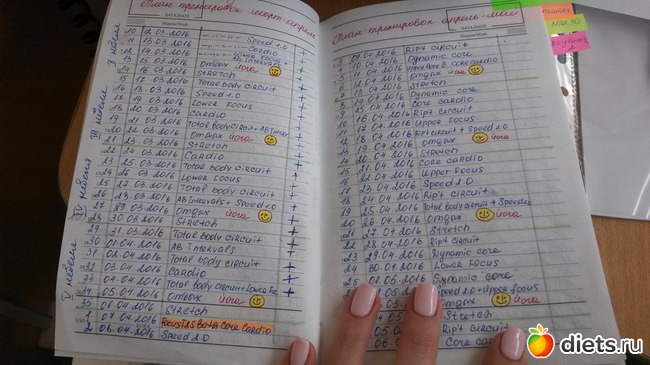 План тренировок март-апрель
DATA/DATE
10 12.03.2016 Speed 1.0 +
13.03.2016 Cardio +
14.03.2016 AB Intervals +
15.03.2016 Omgbix йога
14 16.03.2016 Stretch
Total body circuit +
16 18.03.2016 Speed 1.0 +
17 19.03.2016 Lower Focus +
18 20.03.2016 Cardio +
19 21.03.2016 Total body circuit + AB Interval +
20 22.03.2016 Omgbix йога
21 23.03.2016 Stretch
22 24.03.2016 Cardio +
23 25.03.2016 Total body circuit +
24 26.03.2016 Lower Focus +
25 27.03.2016 Total body circuit +
26 28.03.2016 AB Intervals + Speed 2.0 +
27 29.03.2016 Omgbix йога
28 30.03.2016 Stretch
29 31.03.2016 Total body circuit +
30 01.04.2016 AB Intervals +
31 02.04.2016 Total Body Circuit +
32 03.04.2016 Cardio +
33 04.04.2016 Total body circuit + Lower Foc +
34 05.04.2016 Omgbix йога
35 06.04.2016 Stretch
1 07.04.2016 Focus T25 Beta Core Cardio
2 08.04.2016 Speed 2.0
II неделя
III неделя
IV неделя
V неделя
План тренировок апрель-май
DATA/DATE
3 09.04.2016 Rip't circuit
10.04.2016 Dynamic core
11.04.2016 core cardio
12.04.2016 Omgbix йога
13.04.2016 Stretch
8 14.04.2016 Dynamic core
9 15.04.2016 Core Cardio
10 16.04.2016 Rip't circuit
11 17.04.2016 Upper Focus
12 18.04.2016 Rip't circuit + Speed 2.0
19.04.2016 Omgbix йога
14 20.04.2016 Stretch
15 21.04.2016 Core cardio
16 22.04.2016 Upper Focus
17 23.04.2016 Speed 2.0
18 24.04.2016 Rip't circuit
19 25.04.2016 Total body circuit + Speed 2.0
20 26.04.2016 Omgbix йога
21 27.04.2016 Stretch
22 28.04.2016 Rip't circuit
23 29.04.2016 Dynamic core
24 30.04.2016 Lower Focus
25 01.05.2016 Dynamic core
05.2016 Speed 2.0 + Upper focus
05.2016 Omgbix йога
05.2016 Stretch
05. Rip't circuit
06. Core cardio
MAX 30
diets.ru